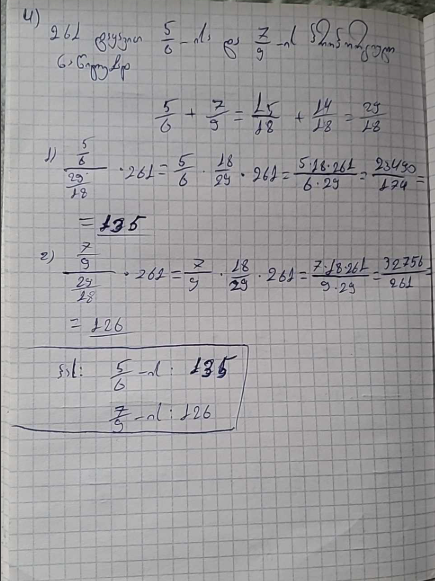 4)
261 დავყოთ 5/6-ის და 7/9-ის პროპორციულ
ნაწილებად
5/6 + 7/9 = 15/18 + 14/18 = 29/18
1) (5/6)/(29/18) · 261 = 5/6 · 18/29 · 261 = 5·18·261/6·29 = 23490/174 =
= 135
2) (7/9)/(29/18) · 261 = 7/9 · 18/29 · 261 = 7·18·261/9·29 = 32756/261 =
= 126
პას: 5/6-ის: 135
7/9-ის: 126